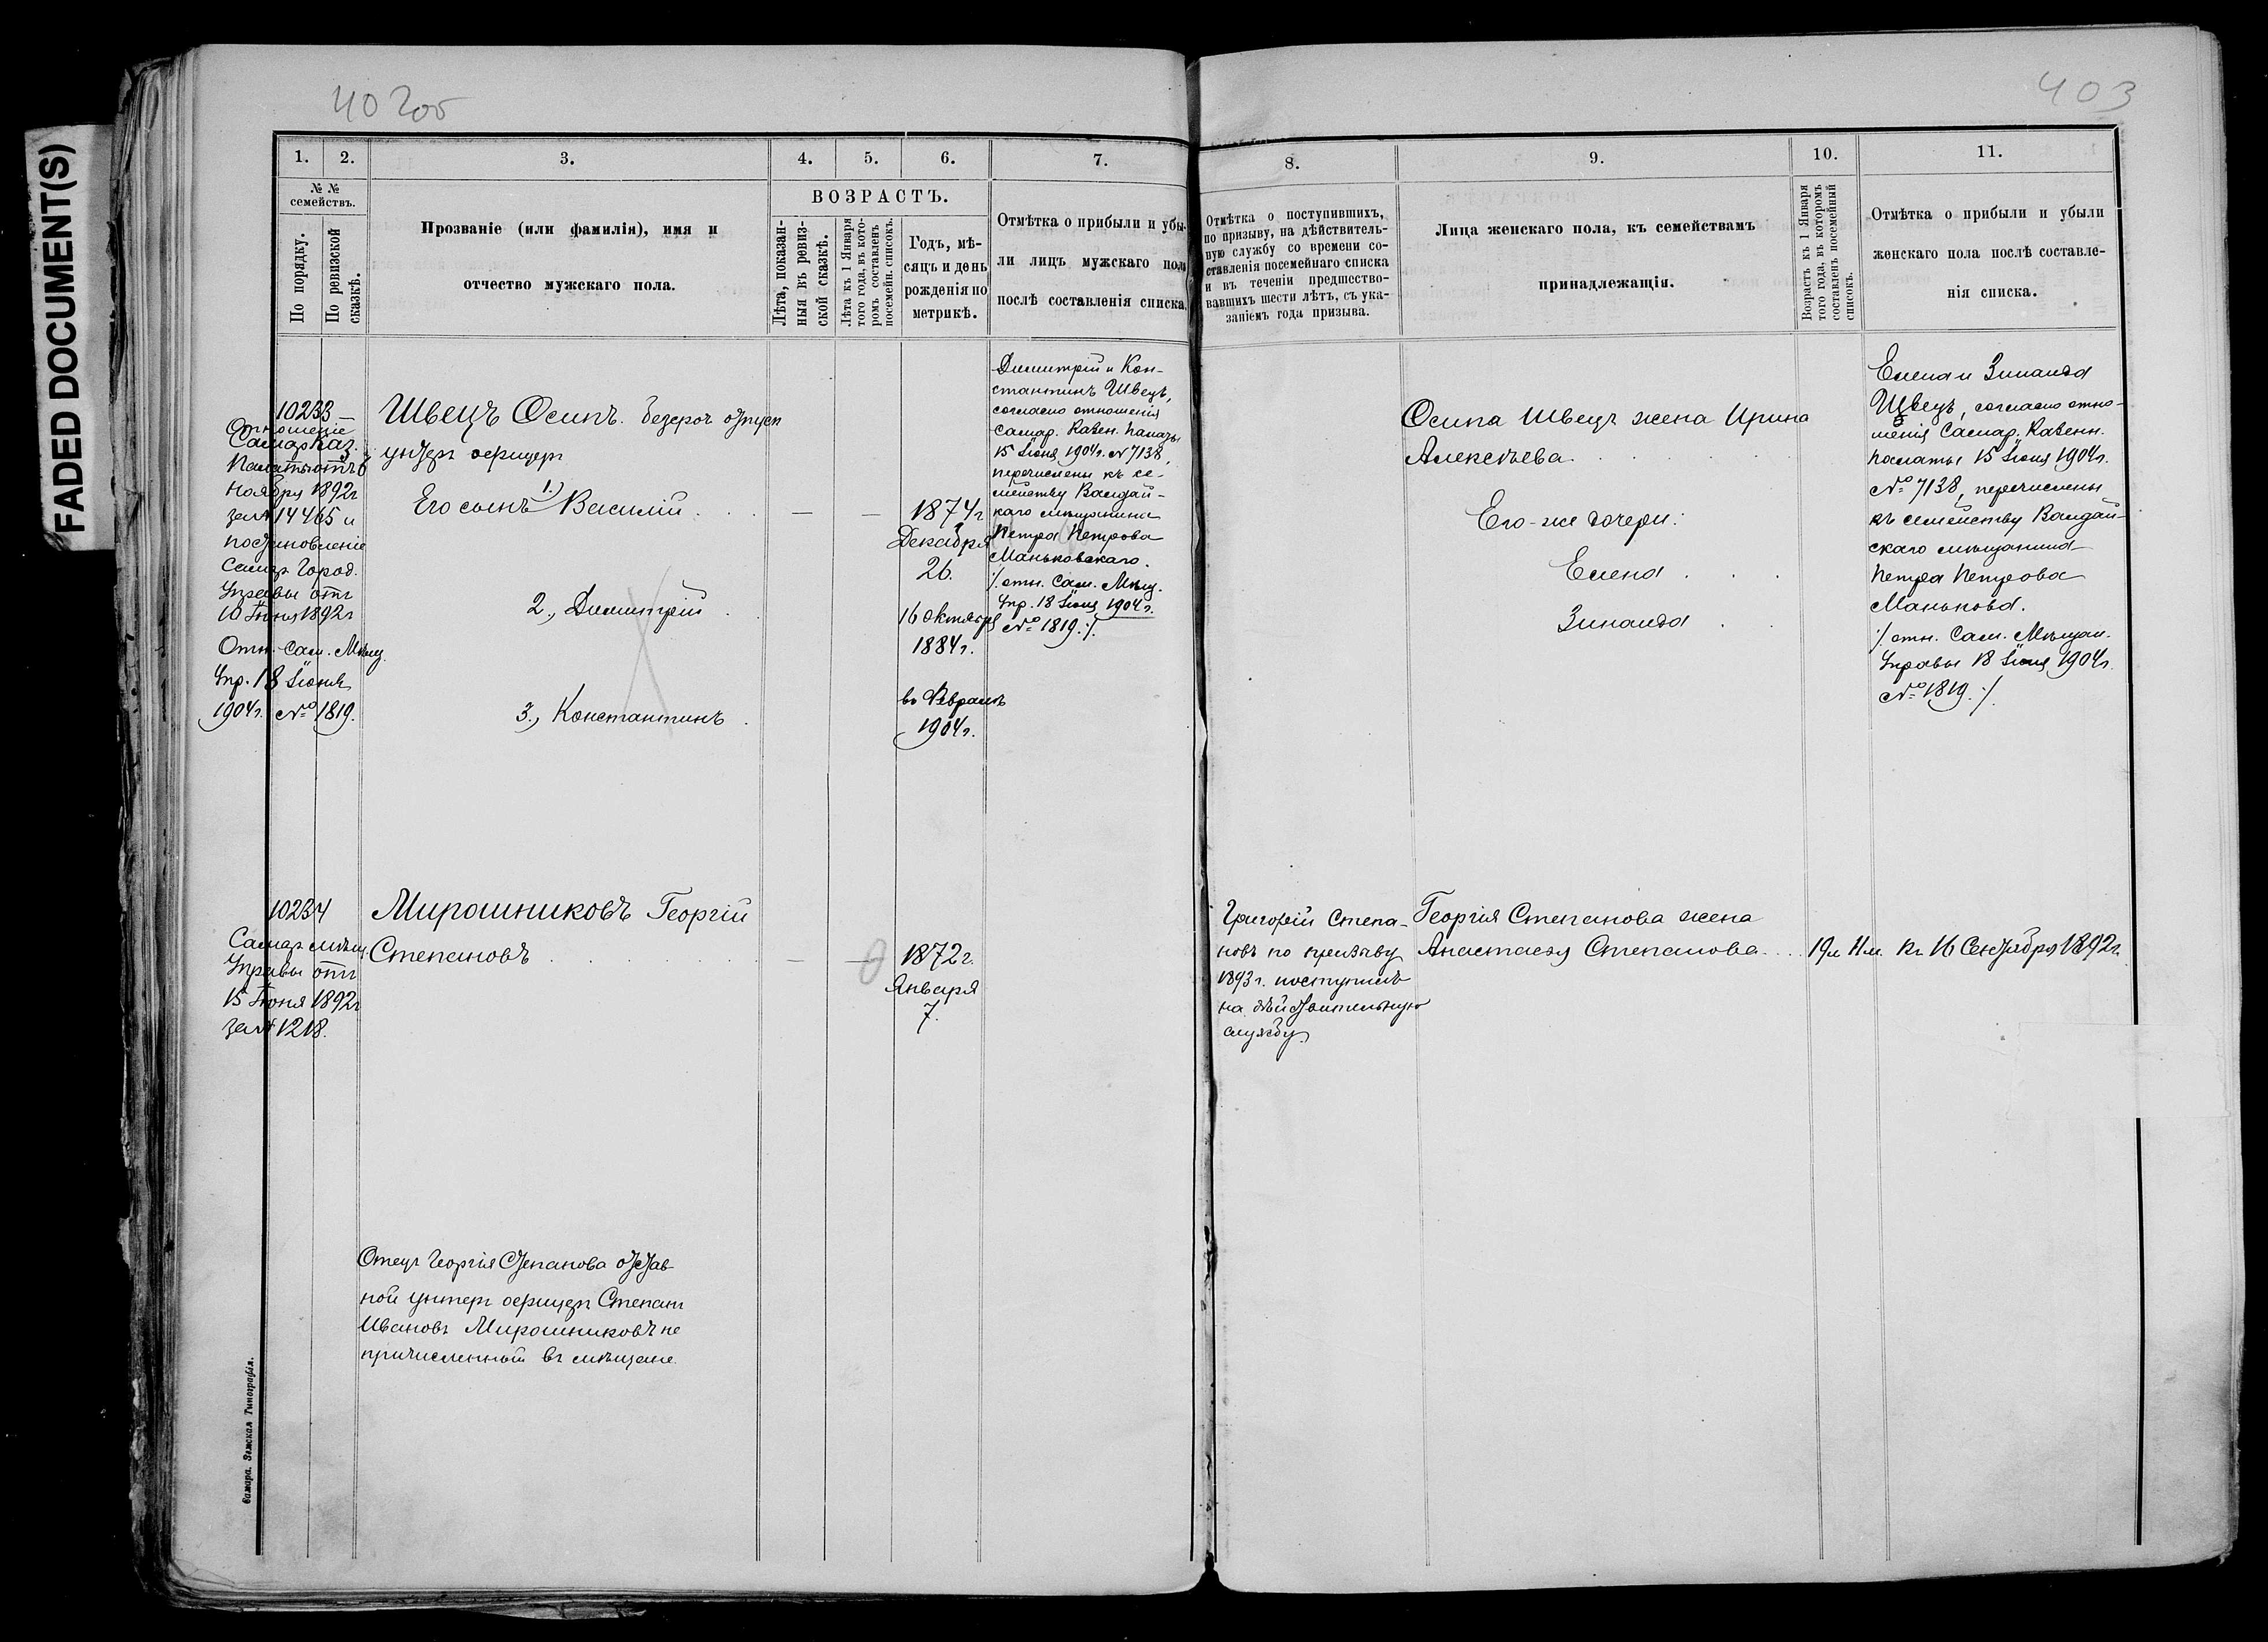 FADED DOCUMENT(S)
402об
403
1. 2. 3. 4. 5. 6. 7. 8. 9. 10. 11.
№ № семействъ.
По порядку.
По ревизской сказкѣ.
Прозваніе (или фамилія), имя и
отчество мужскаго пола.
ВОЗРАСТЪ.
Лѣта, показан-
ныя въ ревиз-
ской сказкѣ.
Лѣта къ 1 Января
того года, въ кото-
ромъ составленъ
посемейн. списокъ.
Годъ, мѣ-
сяцъ и день
рожденія по
метрикѣ.
Отмѣтка о прибыли и убы-
ли лицъ мужскаго пола
послѣ составленія списка.
Отмѣтка о поступившихъ,
по призыву, на дѣйствитель-
ную службу со времени со-
ставленія посемейнаго списка
и въ теченіи предшество-
вавшихъ шести лѣтъ, съ ука-
заніемъ года призыва.
Лица женскаго пола, къ семействамъ
принадлежащія.
Возрастъ къ 1 Января
того года, въ которомъ
составленъ посемейный
списокъ.
Отмѣтка о прибыли и убыли
женскаго пола послѣ составле-
нія списка.
10233
Отношеніе
Самар Каз.
Палаты отъ 6
ноября 1892г
за № 14465 и
постановленіе
Самар. Город.
Управы отъ
10 Іюня 1892г
Отн. Сам. Мѣщ.
Упр. 18 Іюня
1904г. № 1819.
Швецъ Осипъ. безсроч отпуск
унтеръ офицеръ
Его сынъ 1) Василій
2., Димитрій
3., Константинъ
1874г
Декабря
26.
16 Октября
1884г.
въ Февралѣ
1904г.
Димитрій и Кон-
стантинъ Швецъ,
согласно отношенія
Самар. Казен. Палаты
15 Іюня 1904г. № 7138,
перечислены къ се-
мейству Валдай-
каго мѣщанина
Петра Петрова
Маньковскаго.
/. отн. Сам. Мѣщ.
Упр. 18 Іюня 1904г.
№ 1819. /.
Осипа Швецъ жена Ирина
Алексѣева
Его-же дочери:
Елена
Зинаида
Елена и Зинаида
Швецъ, согласно отно-
шенія Самар. Казенн.
Палаты 15 Іюня 1904г.
№ 7138, перечислены
къ семейству Валдай-
скаго мѣщанина
Петра Петрова
Манькова.
/. отн. Сам. Мѣщан.
Управы 18 Іюня 1904г.
№ 1819. /.
10234
Самар мѣщ.
Управы отъ
15 Іюня 1892г
за № 1218.
Мирошниковъ Георгій
Степановъ
1872г.
Января
7.
Григорій Степа-
новъ по призыву
1893г. поступилъ
на дѣйствительную
службу
Георгія Степанова жена
Анастасія Степанова
19л 11м. къ 16 Сентября 1892г.
Отецъ Георгія Степанова отстав-
ной унтеръ офицеръ Степанъ
Ивановъ Мирошниковъ не
причисленный въ мѣщане.
Самара. Земская Типографія.